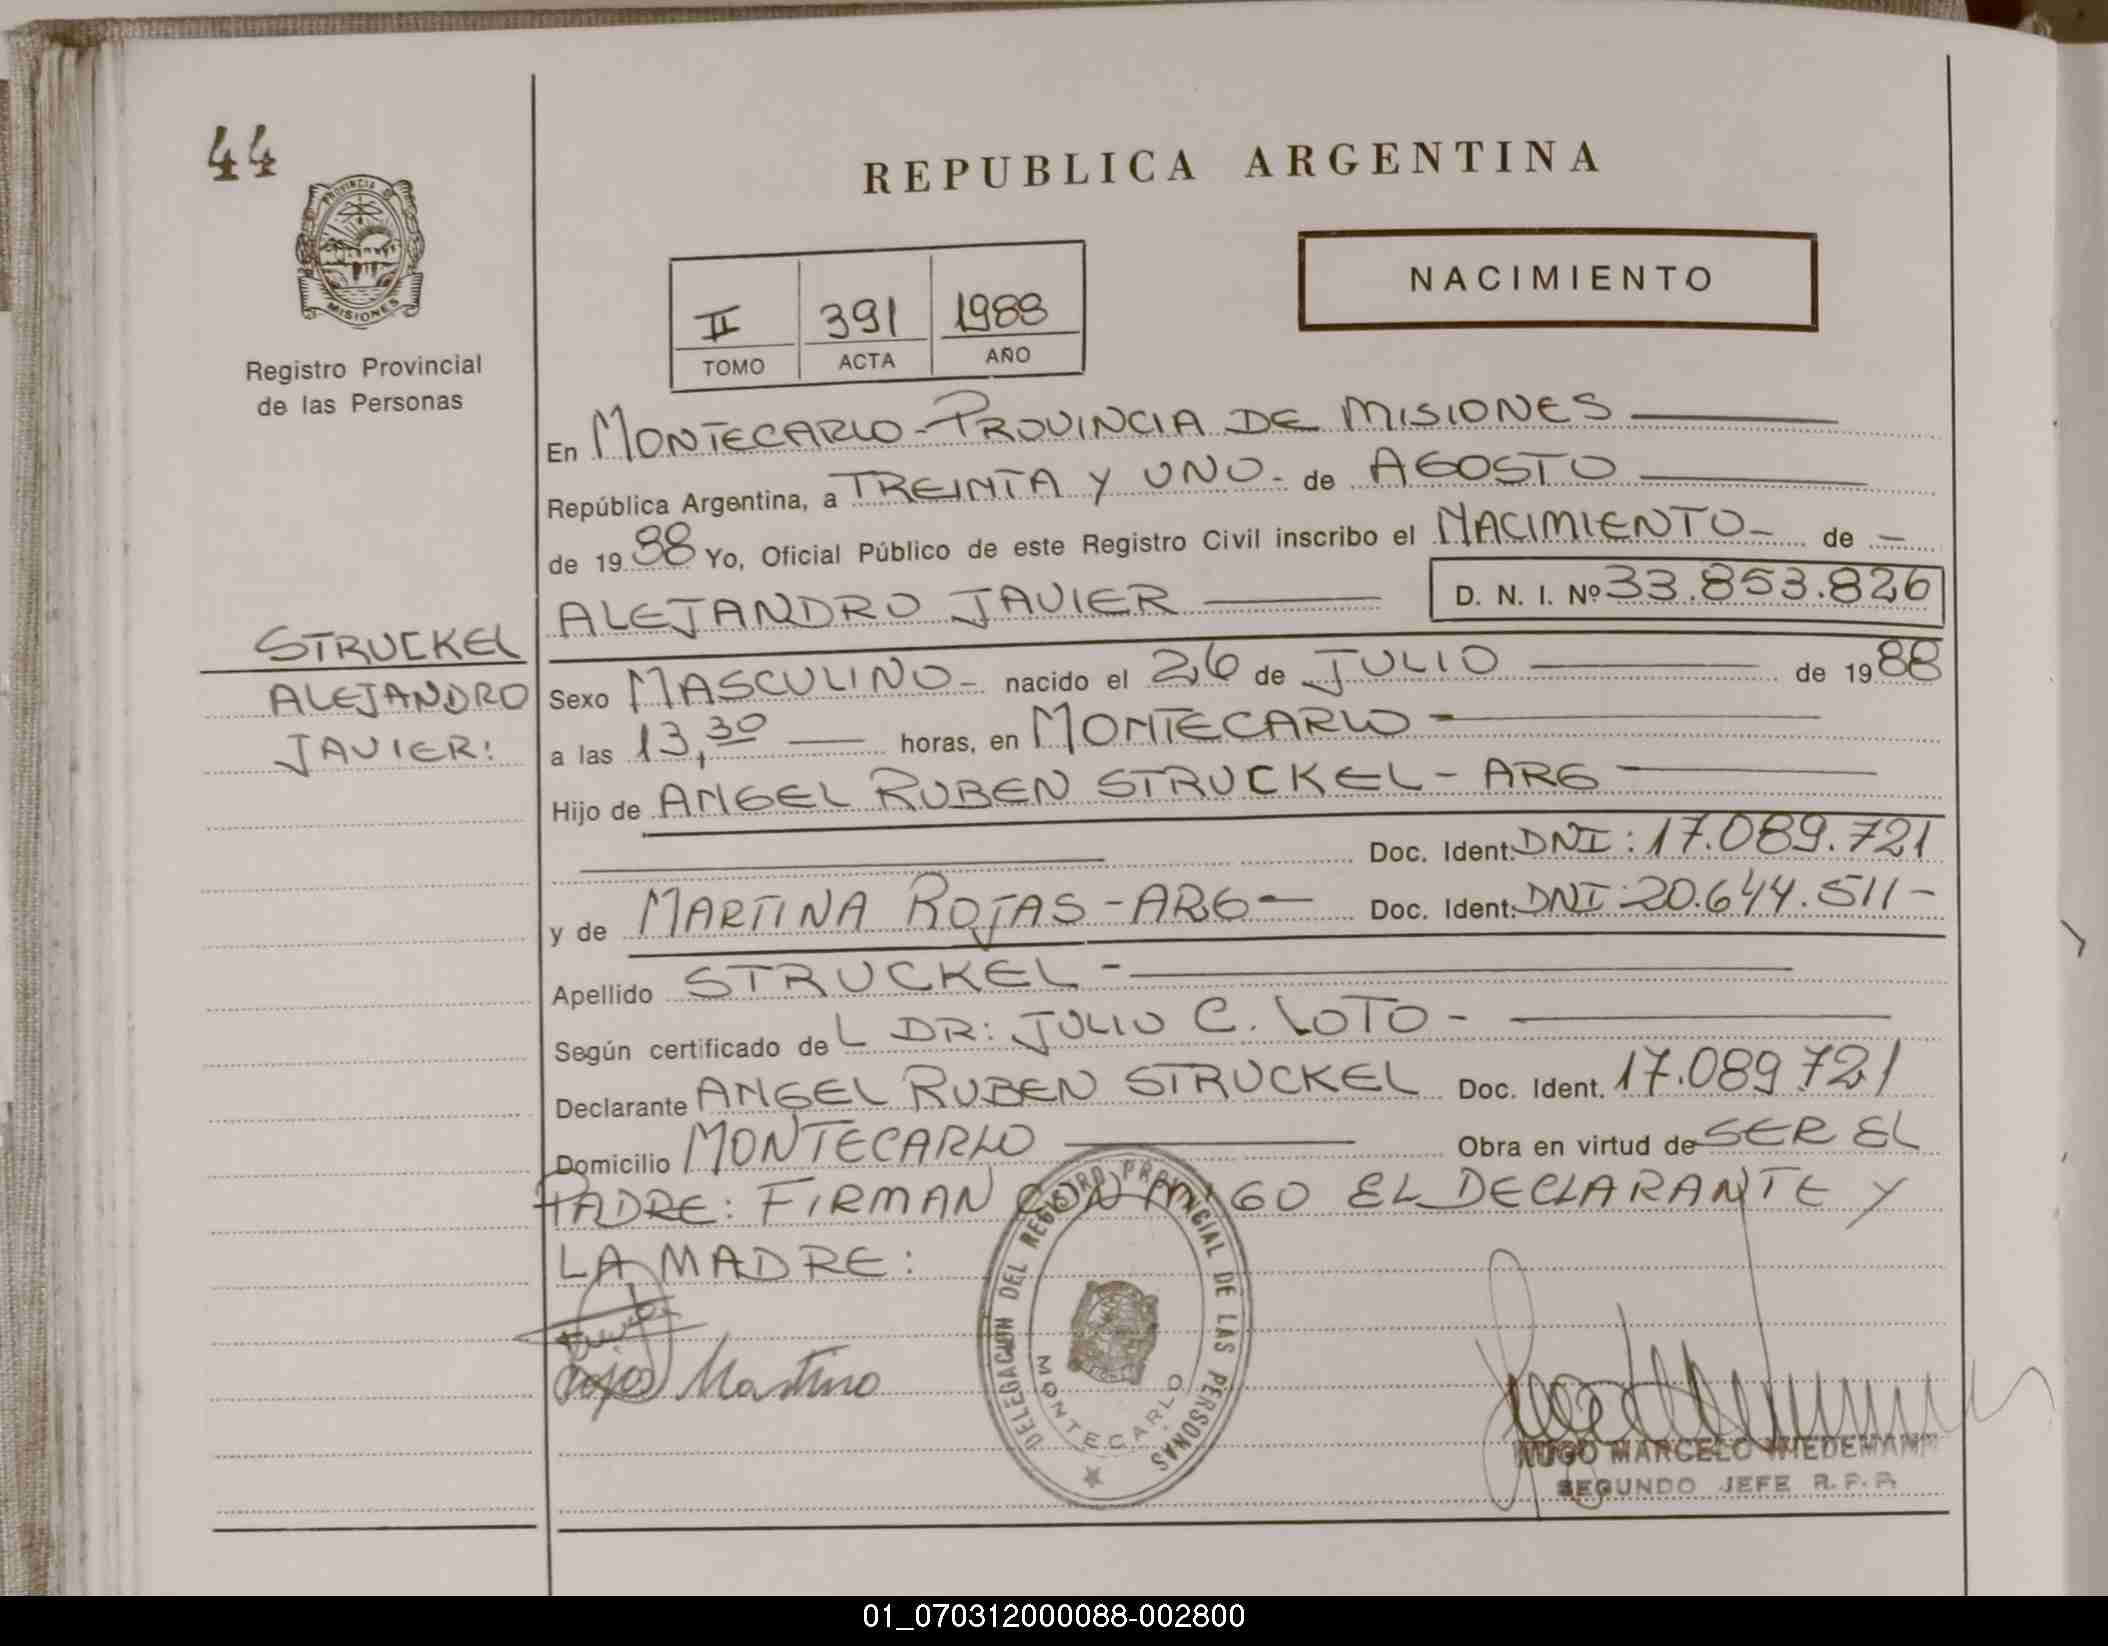 44
PROVINCIA DE
MISIONES
Registro Provincial
de las Personas
REPUBLICA ARGENTINA
NACIMIENTO
II 391 1988
TOMO ACTA AÑO
En MONTECARLO - PROVINCIA DE MISIONES
República Argentina, a TREINTA Y UNO - de AGOSTO
de 19 88 Yo, Oficial Público de este Registro Civil inscribo el NACIMIENTO - de -
ALEJANDRO JAVIER D. N. I. Nº 33.853.826
STRUCKEL
ALEJANDRO
JAVIER:
Sexo MASCULINO - nacido el 26 de JULIO de 19 88
a las 13,30 horas, en MONTECARLO -
Hijo de ANGEL RUBEN STRUCKEL - ARG
Doc. Ident. DNI: 17.089.721
y de MARTINA ROJAS - ARG - Doc. Ident. DNI: 20.644.511 -
Apellido STRUCKEL -
Según certificado de L DR: JULIO C. LOTO -
Declarante ANGEL RUBEN STRUCKEL Doc. Ident. 17.089.721
Domicilio MONTECARLO Obra en virtud de SER EL
PADRE: FIRMAN CONMIGO EL DECLARANTE Y
LA MADRE:
Rojas Martina
DELEGACION DEL REGISTRO PROVINCIAL DE LAS PERSONAS
MONTECARLO
HUGO MARCELO WIEDEMANN
SEGUNDO JEFE R.P.P.
01_070312000088-002800